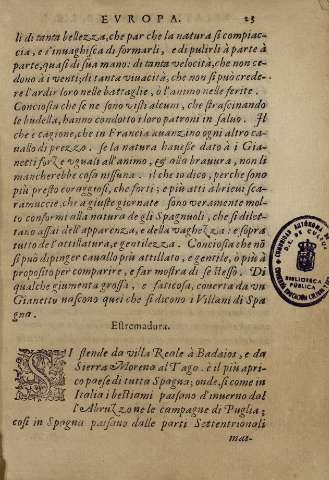 EVROPA. 23
li di tanta bellezza, che par che la natura si compiac-
cia, e s'inuaghisca di formarli, e di pulirli à parte à
parte, quasi di sua mano: di tanta velocità, che non ce-
dono à i venti; di tanta viuacità, che non si può crede-
re l'ardir loro nelle battaglie, ò l'animo nelle ferite.
Conciosia che se ne sono visti alcuni, che strascinando
le budella, hanno condotto i loro patroni in saluo. Il
che è cagione, che in Francia auanzino ogni altro ca-
uallo di prezzo. se la natura hauesse dato à i Gia-
netti forze vguali all'animo, & alla brauura, non li
mancherebbe cosa nissuna. il che io dico, perche sono
più presto coraggiosi, che forti; e più atti à brieui sca-
ramuccie, che à giuste giornate sono veramente mol-
to conformi alla natura de gli Spagnuoli, che si dilet-
tano assai dell'apparenza, e della vaghezza: e sopra
tutto de l'attillatura, e gentilezza. Conciosia che nõ
si può dipinger cauallo più attillato, e gentile, ò più à
proposito per comparire, e far mostra di se stesso. Di
qualche giumenta grossa, e fatticosa, couerta da vn
Gianetto nascono quei che si dicono i Villani di Spa
gna.
Estremadura.
SI stende da villa Reale à Badaios, e da
Sierra Morena al Tago. è il più apri-
co paese di tutta Spagna; onde, si come in
Italia i bestiami passano d'inuerno dal
l'Abruzzo ne le campagne di Puglia;
cosi in Spagna passano dalle parti Settentrionali
mol-
BIBLIOTECA
PÚBLICA